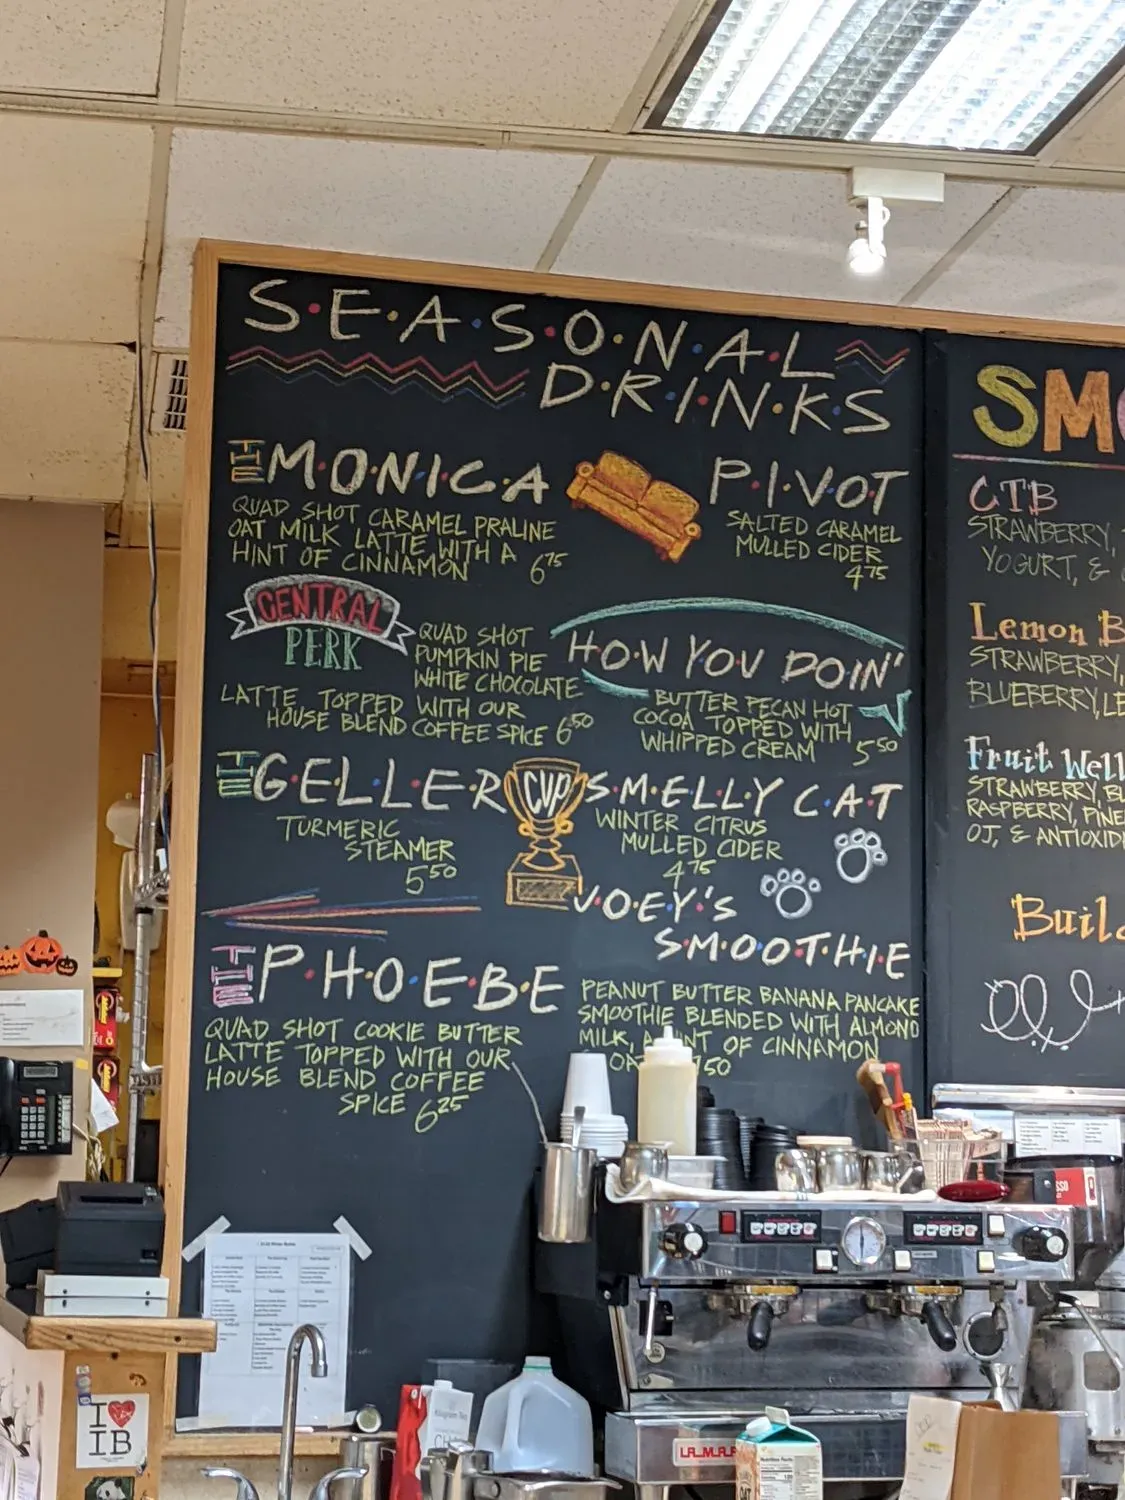 S·E·A·S·O·N·A·L
D·R·I·N·K·S
THE MONICA
QUAD SHOT CARAMEL PRALINE
OAT MILK LATTE WITH A
HINT OF CINNAMON 675
PIVOT
SALTED CARAMEL
MULLED CIDER
475
CENTRAL
PERK
QUAD SHOT
PUMPKIN PIE
WHITE CHOCOLATE
LATTE TOPPED WITH OUR
HOUSE BLEND COFFEE SPICE 650
HOW YOU DOIN'
BUTTER PECAN HOT
COCOA TOPPED WITH
WHIPPED CREAM 550
THE GELLER CUP
TURMERIC
STEAMER
550
SMELLY CAT
WINTER CITRUS
MULLED CIDER
475
JOEY'S
SMOOTHIE
PEANUT BUTTER BANANA PANCAKE
SMOOTHIE BLENDED WITH ALMOND
MILK, OF CINNAMON
THE PHOEBE
QUAD SHOT COOKIE BUTTER
LATTE TOPPED WITH OUR
HOUSE BLEND COFFEE
SPICE 625
CTB
STRAWBERRY,
YOGURT, &
Lemon
STRAWBERRY,
BLUEBERRY,
Fruit
STRAWBERRY,
RASPBERRY,
OJ, &
I
IB